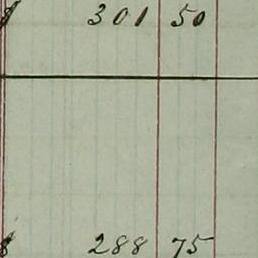 $ 301 50
$ 288 75